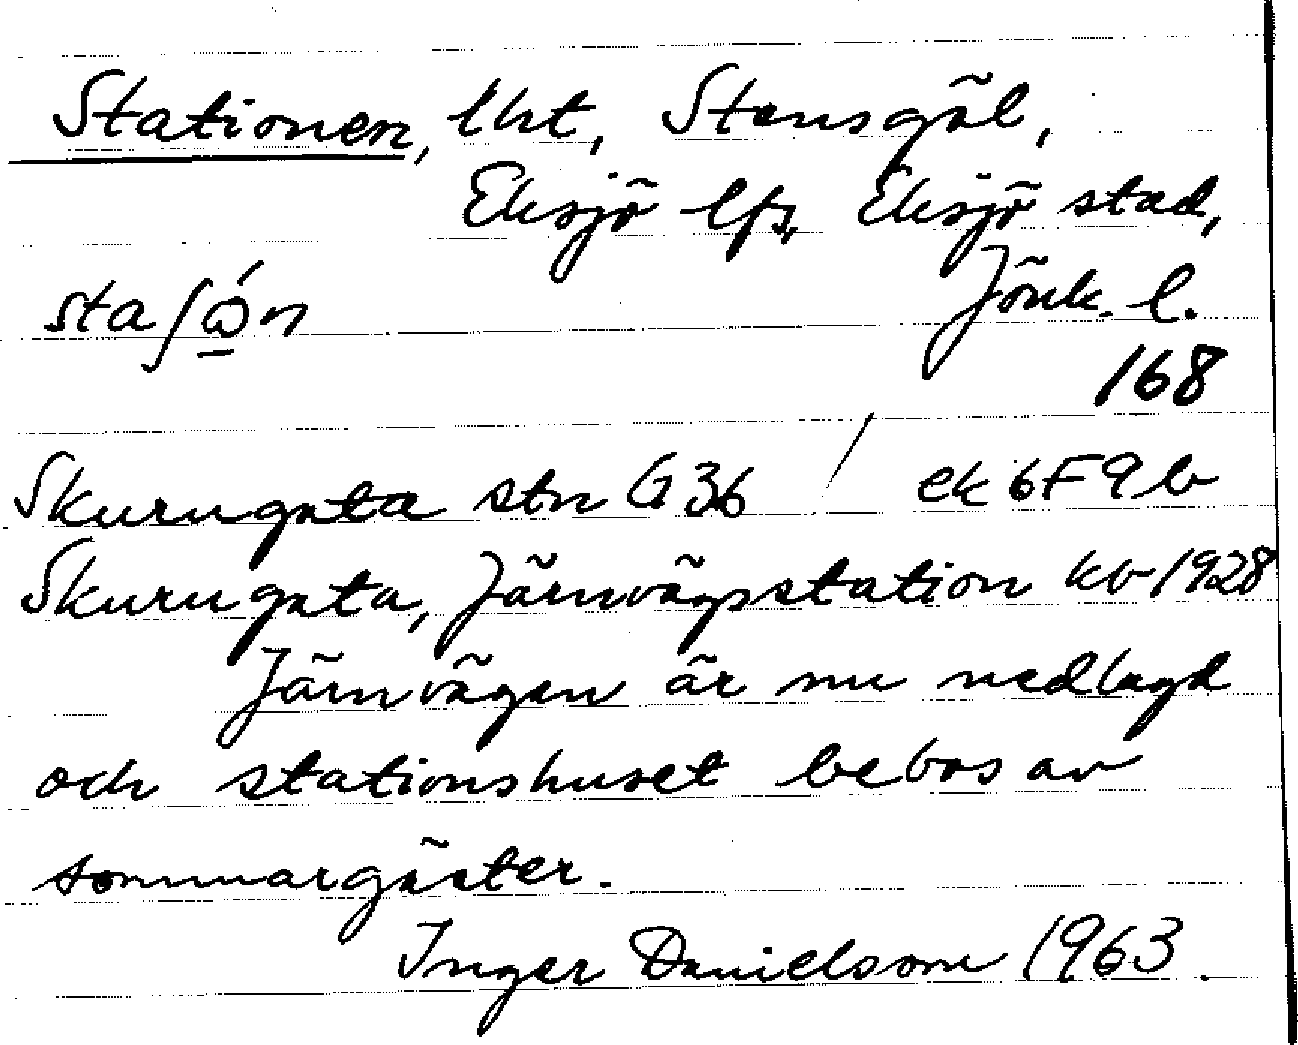 Stationen, lht, Stensgöl,
Eksjö lfs, Eksjö stad,
staʃώ̱n Jönk. l.
168
Skurugata stn G36 / ek 6F9b
Skurugata, Järnvägsstation kb 1928
Järnvägen är nu nedlagd
och stationshuset bebos av
sommargäster.
Inger Danielsson 1963.